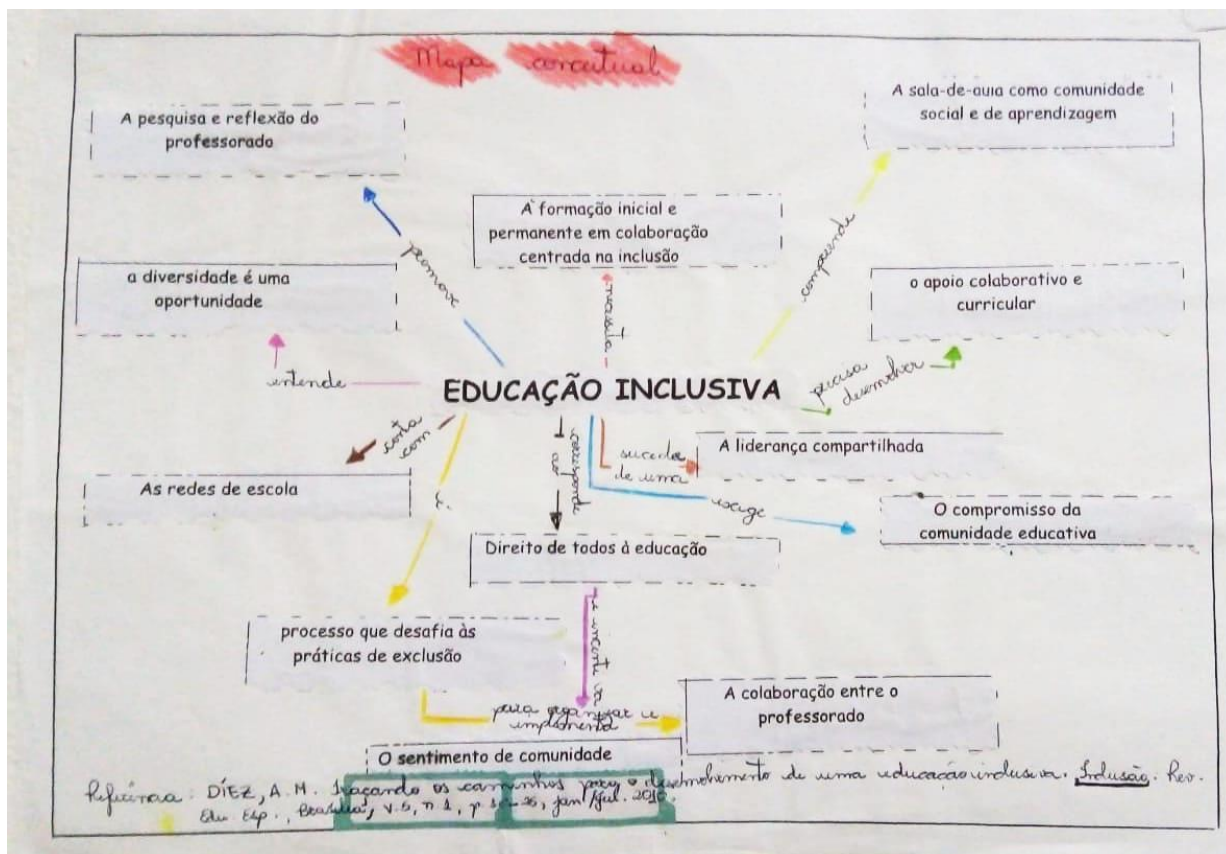 Mapa conceitual
A pesquisa e reflexão do
professorado
A sala-de-aula como comunidade
social e de aprendizagem
A formação inicial e
permanente em colaboração
centrada na inclusão
promove
compreende
a diversidade é uma
oportunidade
o apoio colaborativo e
curricular
necessita
entende
EDUCAÇÃO INCLUSIVA
precisa
desenvolver
conta
com
corresponde
ao
suceder
de uma
A liderança compartilhada
As redes de escola
é
exige
O compromisso da
comunidade educativa
Direito de todos à educação
processo que desafia às
práticas de exclusão
A colaboração entre o
professorado
para organizar e
implementa
O sentimento de comunidade
Referência: DÍEZ, A. M. Traçando os caminhos para o desenvolvimento de uma educação inclusiva. Inclusão. Rev.
Edu. Esp., Brasília, v.5, n 1, p jan/jul. 2010.